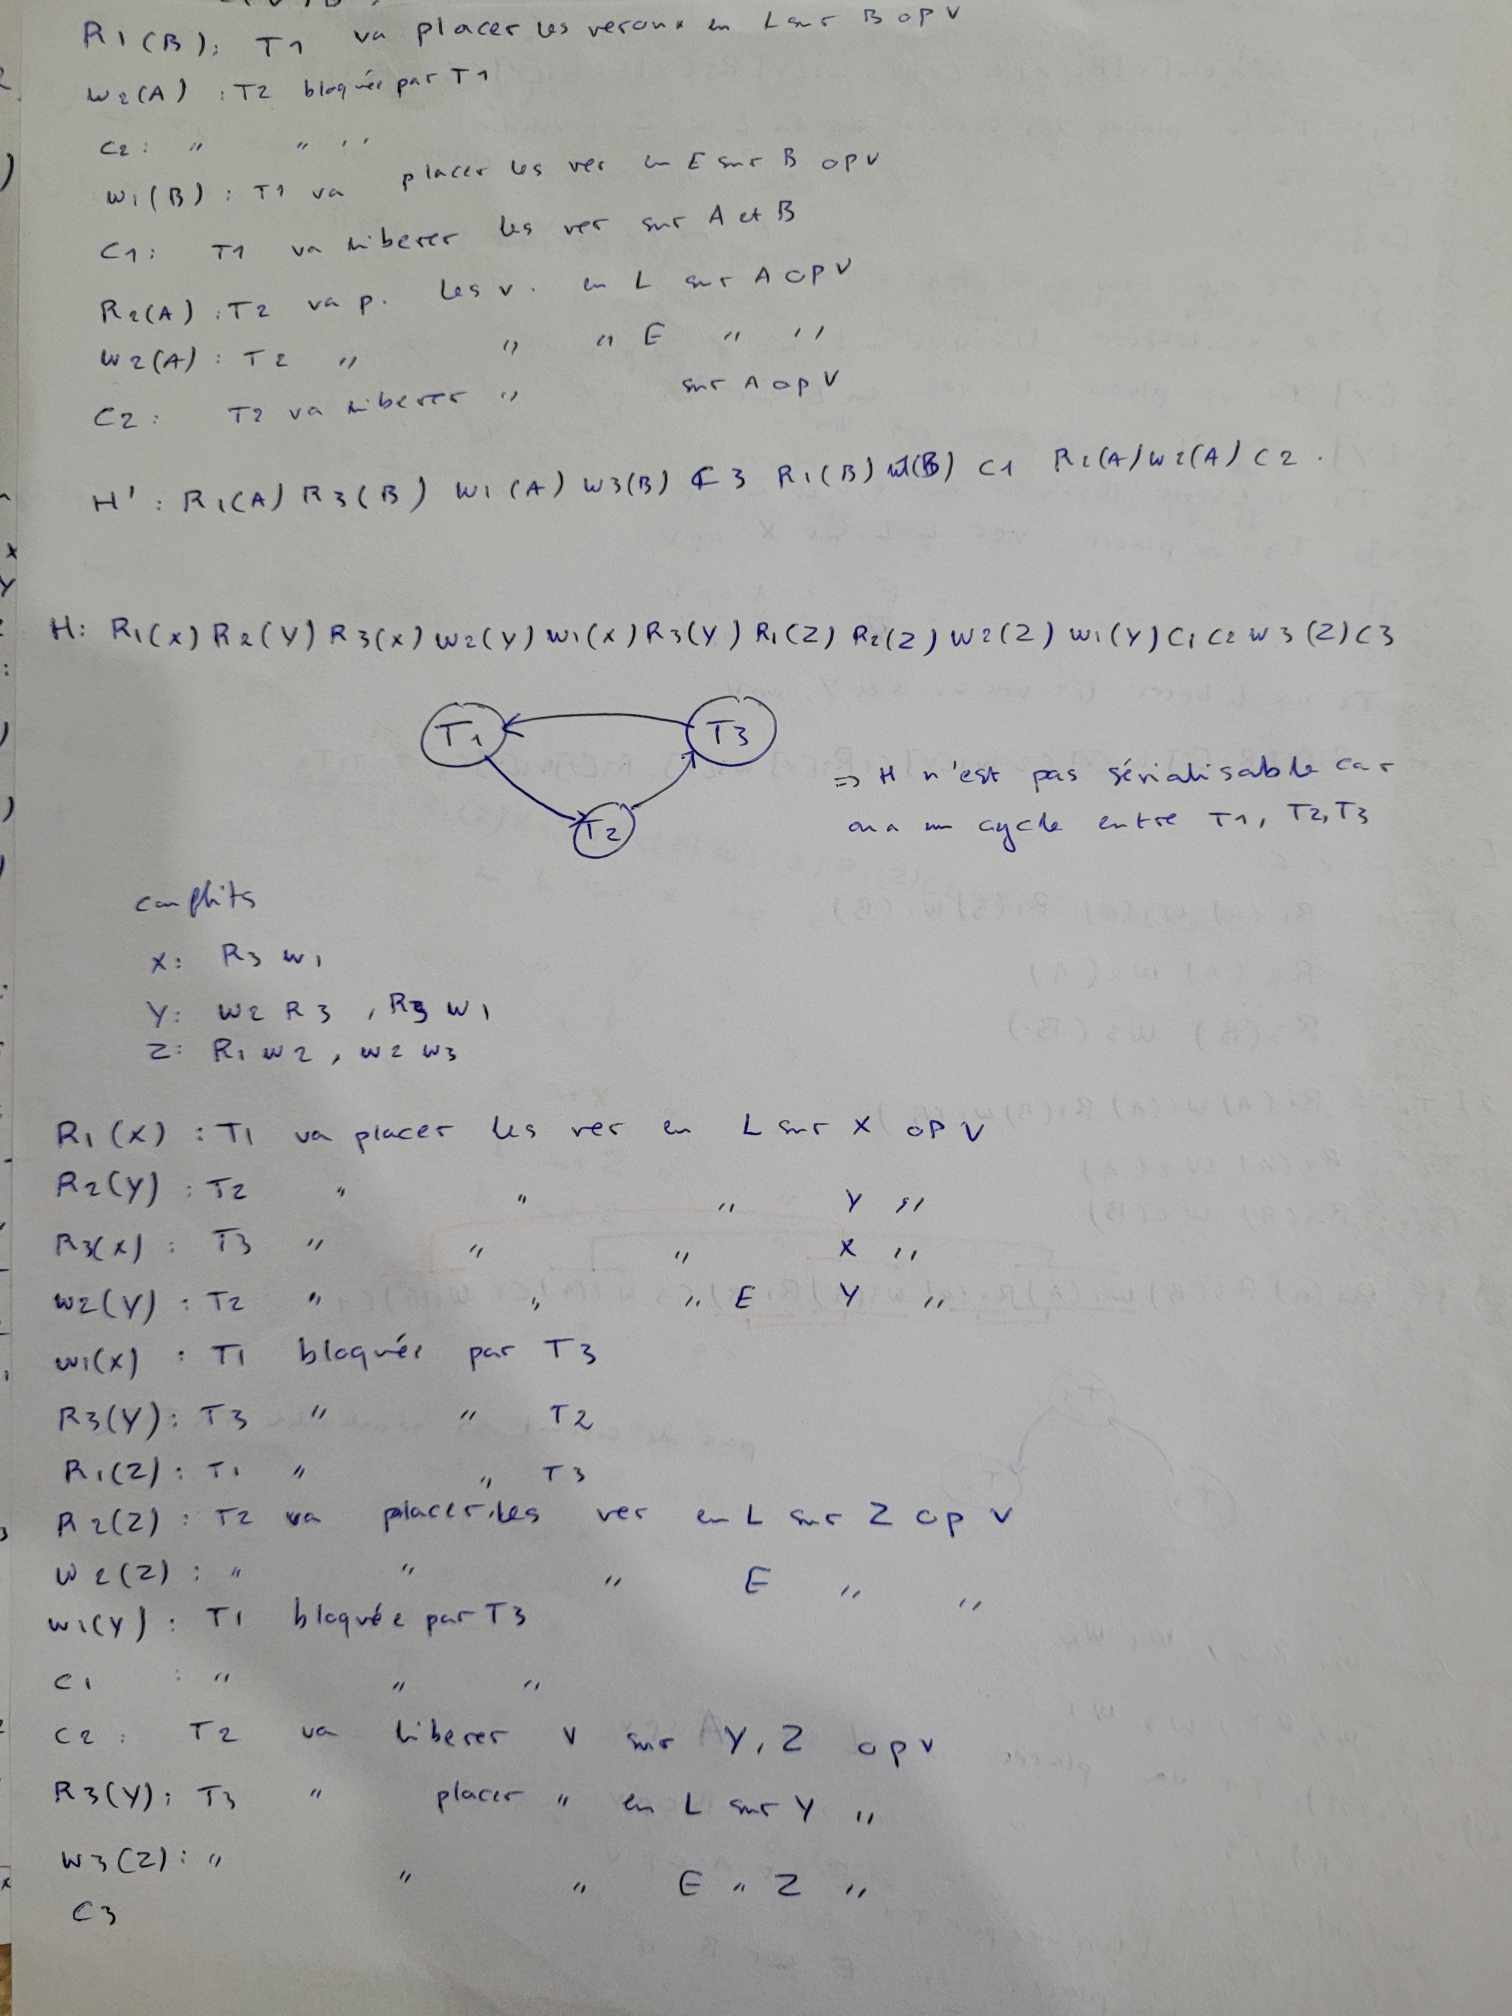 R1(B): T1 va placer les veroux en L sur B opv
W2(A) : T2 bloquée par T1
C2 : " " "
W1(B) : T1 va placer les ver en E sur B opv
C1 : T1 va liberer les ver sur A et B
R2(A) : T2 va p. les v. en L sur A opv
W2(A) : T2 " " " E " "
C2 : T2 va liberer " sur A opv
H' : R1(A) R3(B) W1(A) W3(B) C3 R1(B) W1(B) C1 R2(A) W2(A) C2.
H: R1(X) R2(Y) R3(X) W2(Y) W1(X) R3(Y) R1(Z) R2(Z) W2(Z) W1(Y) C1 C2 W3(Z) C3
T1 T3
T2
=> H n'est pas sérialisable car
on a un cycle entre T1, T2, T3
conflits
X: R3 W1
Y: W2 R3 , R3 W1
Z: R1 W2 , W2 W3
R1(X) : T1 va placer les ver en L sur X opv
R2(Y) : T2 " " " Y "
R3(X) : T3 " " " X "
W2(Y) : T2 " " " E Y "
W1(X) : T1 bloquée par T3
R3(Y) : T3 " " T2
R1(Z) : T1 " " T3
R2(Z) : T2 va placer les ver en L sur Z opv
W2(Z) : " " " E " "
W1(Y) : T1 bloquée par T3
C1 : " " "
C2 : T2 va liberer v sur Y, Z opv
R3(Y) : T3 " placer " en L sur Y "
W3(Z) : " " " E " Z "
C3